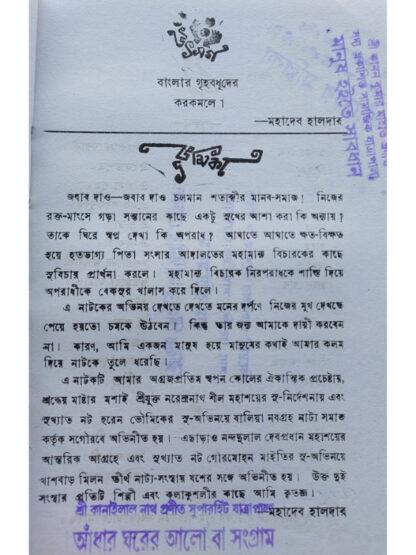 উৎসর্গ
বাংলার গৃহবধূদের
করকমলে ।
—মহাদেব হালদার
ভূমিকা
জবাব দাও—জবাব দাও চলমান শতাব্দীর মানব-সমাজ ! নিজের
রক্ত-মাংসে গড়া সন্তানের কাছে একটু সুখের আশা করা কি অন্যায় ?
তাকে ঘিরে স্বপ্ন দেখা কি অপরাধ ? আঘাতে আঘাতে ক্ষত-বিক্ষত
হয়ে হতভাগ্য পিতা সংসার আদালতের মহামান্য বিচারকের কাছে
সুবিচার প্রার্থনা করলে । মহামান্য বিচারক নিরপরাধকে শাস্তি দিয়ে
অপরাধীকে বেকসুর খালাস করে দিলে ।
এ নাটকের অভিনয় দেখতে দেখতে মনের দর্পণে নিজের মুখ দেখতে
পেয়ে হয়তো চমকে উঠবেন ! কিন্তু তার জন্য আমাকে দায়ী করবেন
না । কারণ, আমি একজন মানুষ হয়ে মানুষের কথাই আমার কলম
দিয়ে নাটকে তুলে ধরেছি ।
এ নাটকটি আমার অগ্রজপ্রতিম স্বপন কোলের ঐকান্তিক প্রচেষ্টায়,
শ্রদ্ধেয় মাষ্টার মশাই শ্রীযুক্ত নরেন্দ্রনাথ শীল মহাশয়ের সু-নির্দেশনায় এবং
সুখ্যাত নট হরেন ভৌমিকের সু-অভিনয়ে বালিয়া নবগ্রহ নাট্য সমাজ
কর্তৃক সগৌরবে অভিনীত হয় । এছাড়াও নন্দদুলাল দেবপ্রধান মহাশয়ের
আন্তরিক আগ্রহে এবং সুখ্যাত নট গৌরমোহন মাইতির সু-অভিনয়ে
খাশবাড় মিলন তীর্থ নাট্য-সংস্থায় যশের সঙ্গে অভিনীত হয় । উক্ত দুই
সংস্থার প্রতিটি শিল্পী এবং কলাকুশলীর কাছে আমি কৃতজ্ঞ ।
—মহাদেব হালদার
শ্রী কানাইলাল নাথ প্রণীত সুপারহিট যাত্রা
আঁধার ঘরের আলো বা সংগ্রাম
মানুষ হইতে সাবধান